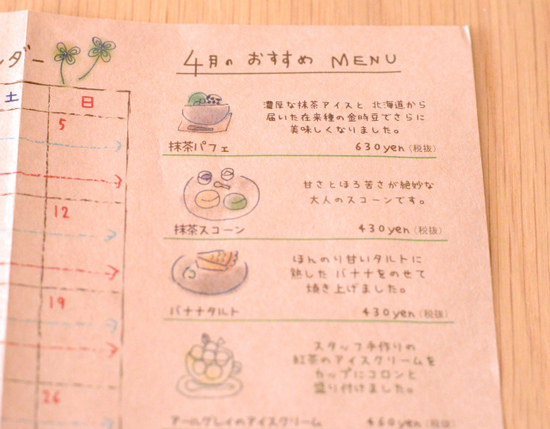 ンダー
土 日
5
12
19
26
4月の おすすめ MENU
濃厚な抹茶アイスと 北海道から
届いた在来種の金時豆でさらに
美味しくなりました。
抹茶パフェ 630yen (税抜)
甘さとほろ苦さが絶妙な
大人のスコーンです。
抹茶スコーン 430yen (税抜)
ほんのり甘いタルトに
熟した バナナをのせて
焼き上げました。
バナナタルト 430yen (税抜)
スタッフ手作りの
紅茶のアイスクリームを
カップにコロンと
盛り付けました。
アールグレイのアイスクリーム 460yen (税抜)